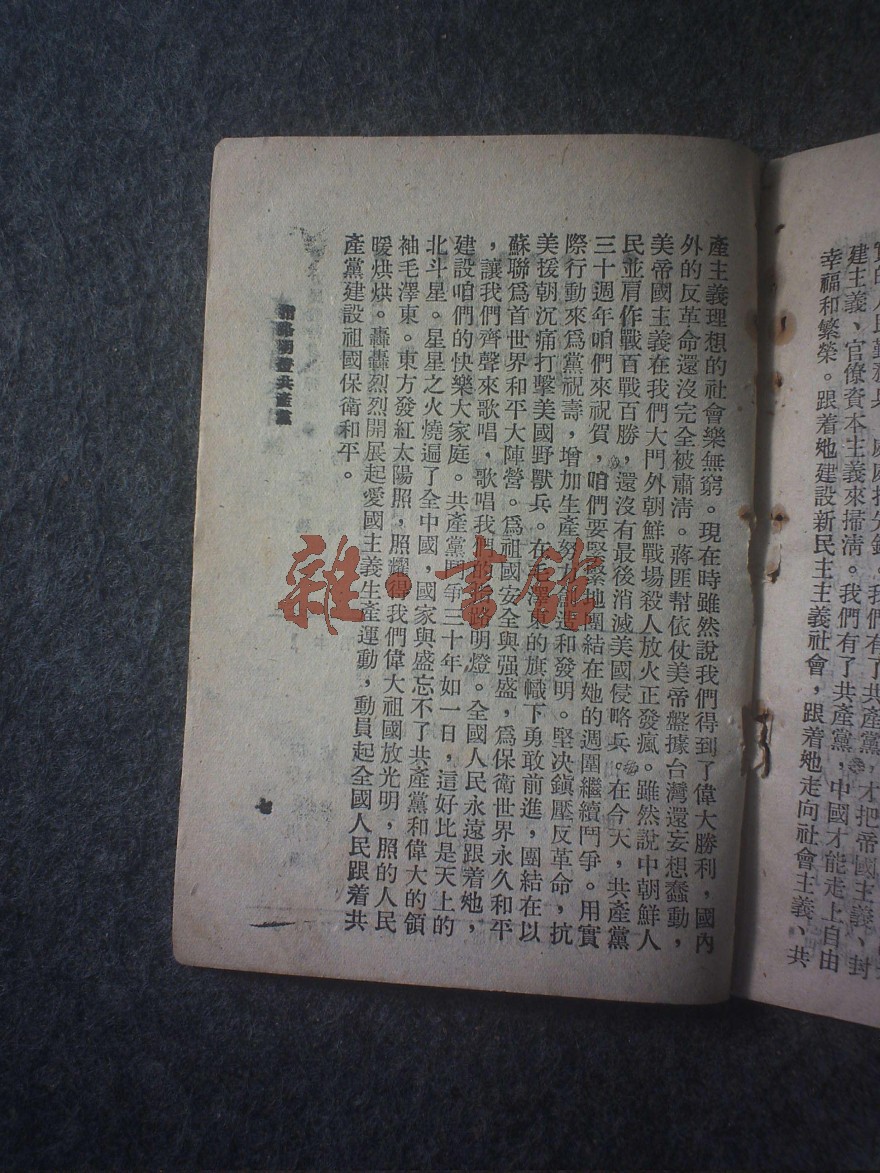 建主義、官僚資本主義來掃清。我們有了共產黨，中國才能走上自由
幸福和繁榮。跟着她建設新民主主義社會，跟着她走向社會主義、共
產主義理想的社會樂無窮。現在時雖然說我們得到了偉大勝利，國內
外的反革命還沒完全被肅清。蔣匪幫依仗美帝盤據台灣還妄想蠢動，
美帝國主義在我們大門外朝鮮戰場殺人放火正發瘋。雖然說中朝鮮人
民並肩作戰百戰百勝，還沒有最後消滅美國侵略兵。在今天，共產黨
三十週年咱們來祝賀，咱們要緊緊地團結在她的週圍繼續鬥爭。用實
際行動來爲黨祝壽，增加生產努力創造和發明。堅決鎭壓反革命，抗
美援朝沉痛打擊美國野獸兵。在毛澤東的旗幟下勇敢前進，團結在以
蘇聯爲首世界和平大陣營。爲祖國安全與强盛，爲保衛世界永久和平
，讓我們齊聲來歌唱，歌唱我們的指路明燈。全國人民永遠跟着她，
建設咱們的快樂大家庭。共產黨鬥爭三十年如一日，這好比是天上的
北斗星。星星之火燒遍了全中國，國家興盛忘不了共產黨和偉大的領
袖毛澤東。東方發紅太陽照，照耀得我們偉大祖國放光明，照的人民
暖烘烘。轟轟烈烈開展起愛國主義生產運動，動員起全國人民跟着共
產黨建設祖國保衛和平。
指路明燈共產黨
七
雜·書館